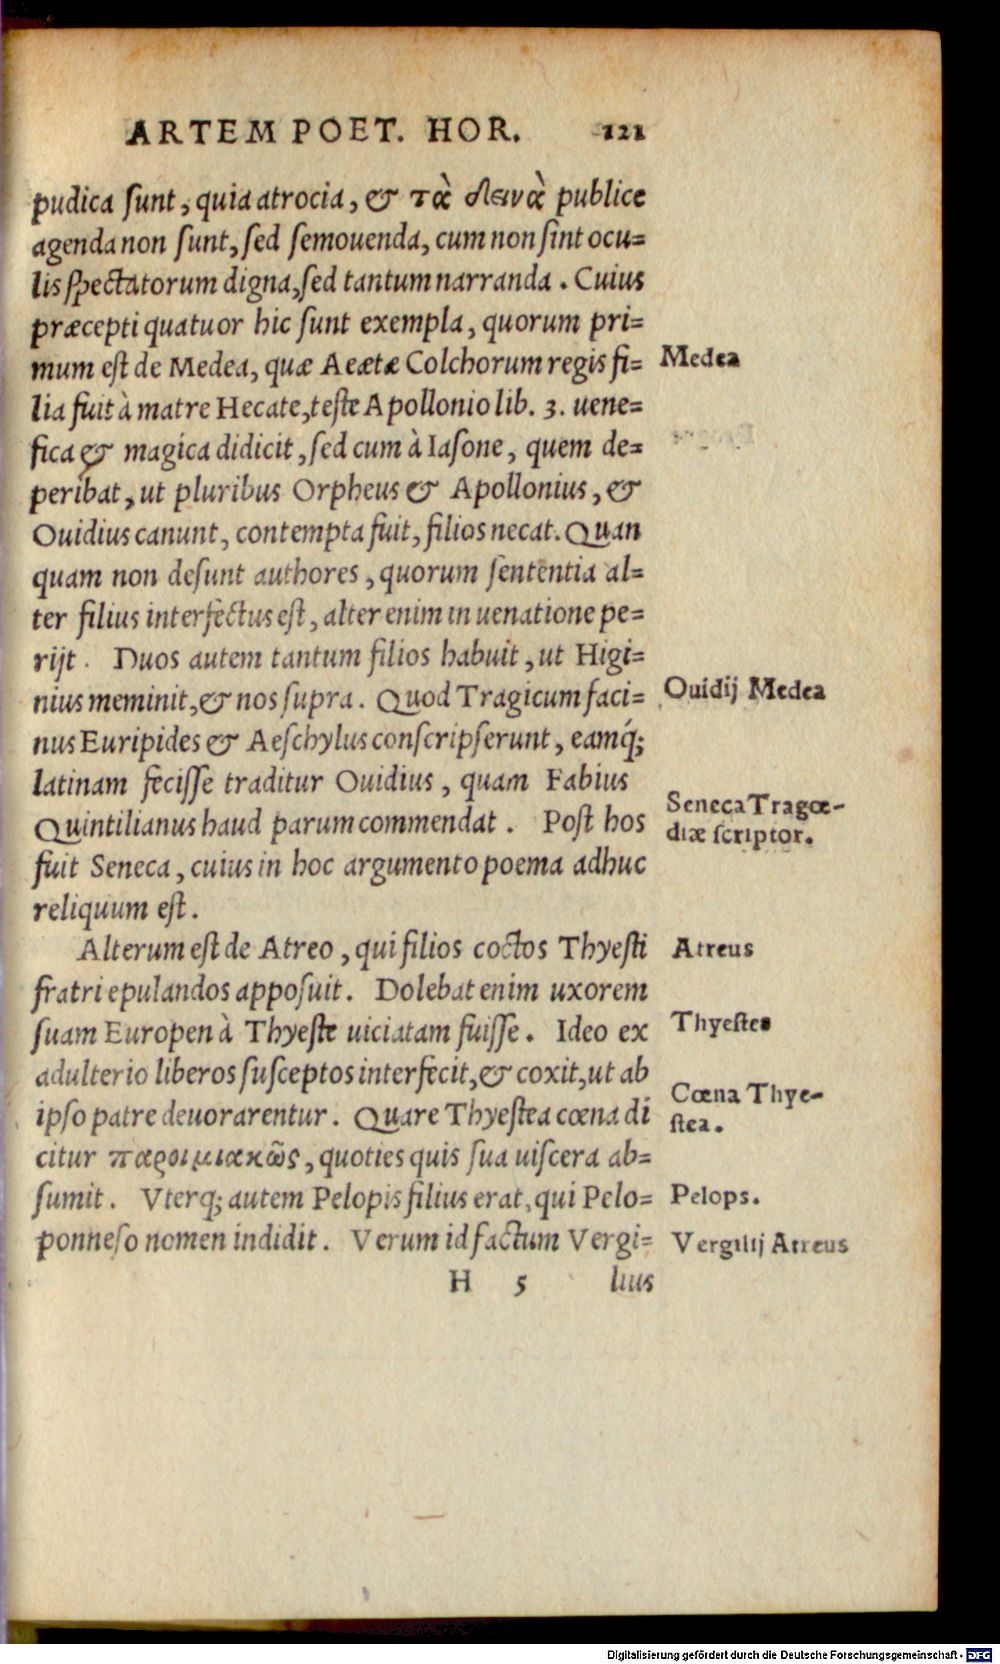 ARTEM POET. HOR. 121
pudica ſunt, quia atrocia, & τὰ δεινὰ publice
agenda non ſunt, ſed ſemouenda, cum non ſint ocu=
lis ſpectatorum digna, ſed tantum narranda. Cuius
præcepti quatuor hic ſunt exempla, quorum pri=
mum eſt de Medea, quæ Aeætæ Colchorum regis fi=
Medea
lia fuit à matre Hecate, teſte Apollonio lib. 3. uene=
fica & magica didicit, ſed cum à Iaſone, quem de=
peribat, ut pluribus Orpheus & Apollonius, &
Ouidius canunt, contempta fuit, filios necat. Quan
quam non deſunt authores, quorum ſententia al=
ter filius interfectus eſt, alter enim in uenatione pe=
rijt. Duos autem tantum filios habuit, ut Higi=
nius meminit, & nos ſupra. Quod Tragicum faci=
Ouidij Medea
nus Euripides & Aeſchylus conſcripſerunt, eamq́;
latinam feciſſe traditur Ouidius, quam Fabius
Quintilianus haud parum commendat. Poſt hos
Seneca Tragœ-
diæ ſcriptor.
fuit Seneca, cuius in hoc argumento poema adhuc
reliquum eſt.
Alterum eſt de Atreo, qui filios coctos Thyeſti
Atreus
fratri epulandos appoſuit. Dolebat enim uxorem
ſuam Europen à Thyeſte uiciatam fuiſſe. Ideo ex
Thyeſtes
adulterio liberos ſuſceptos interfecit, & coxit, ut ab
ipſo patre deuorarentur. Quare Thyeſtea cœna di
Cœna Thye-
ſtea.
citur παροιμιακῶς, quoties quis ſua uiſcera ab=
ſumit. Vterq; autem Pelopis filius erat, qui Pelo=
Pelops.
ponneſo nomen indidit. Verum id factum Vergi=
Vergilij Atreus
H 5 lius
Digitalisierung gefördert durch die Deutsche Forschungsgemeinschaft - DFG